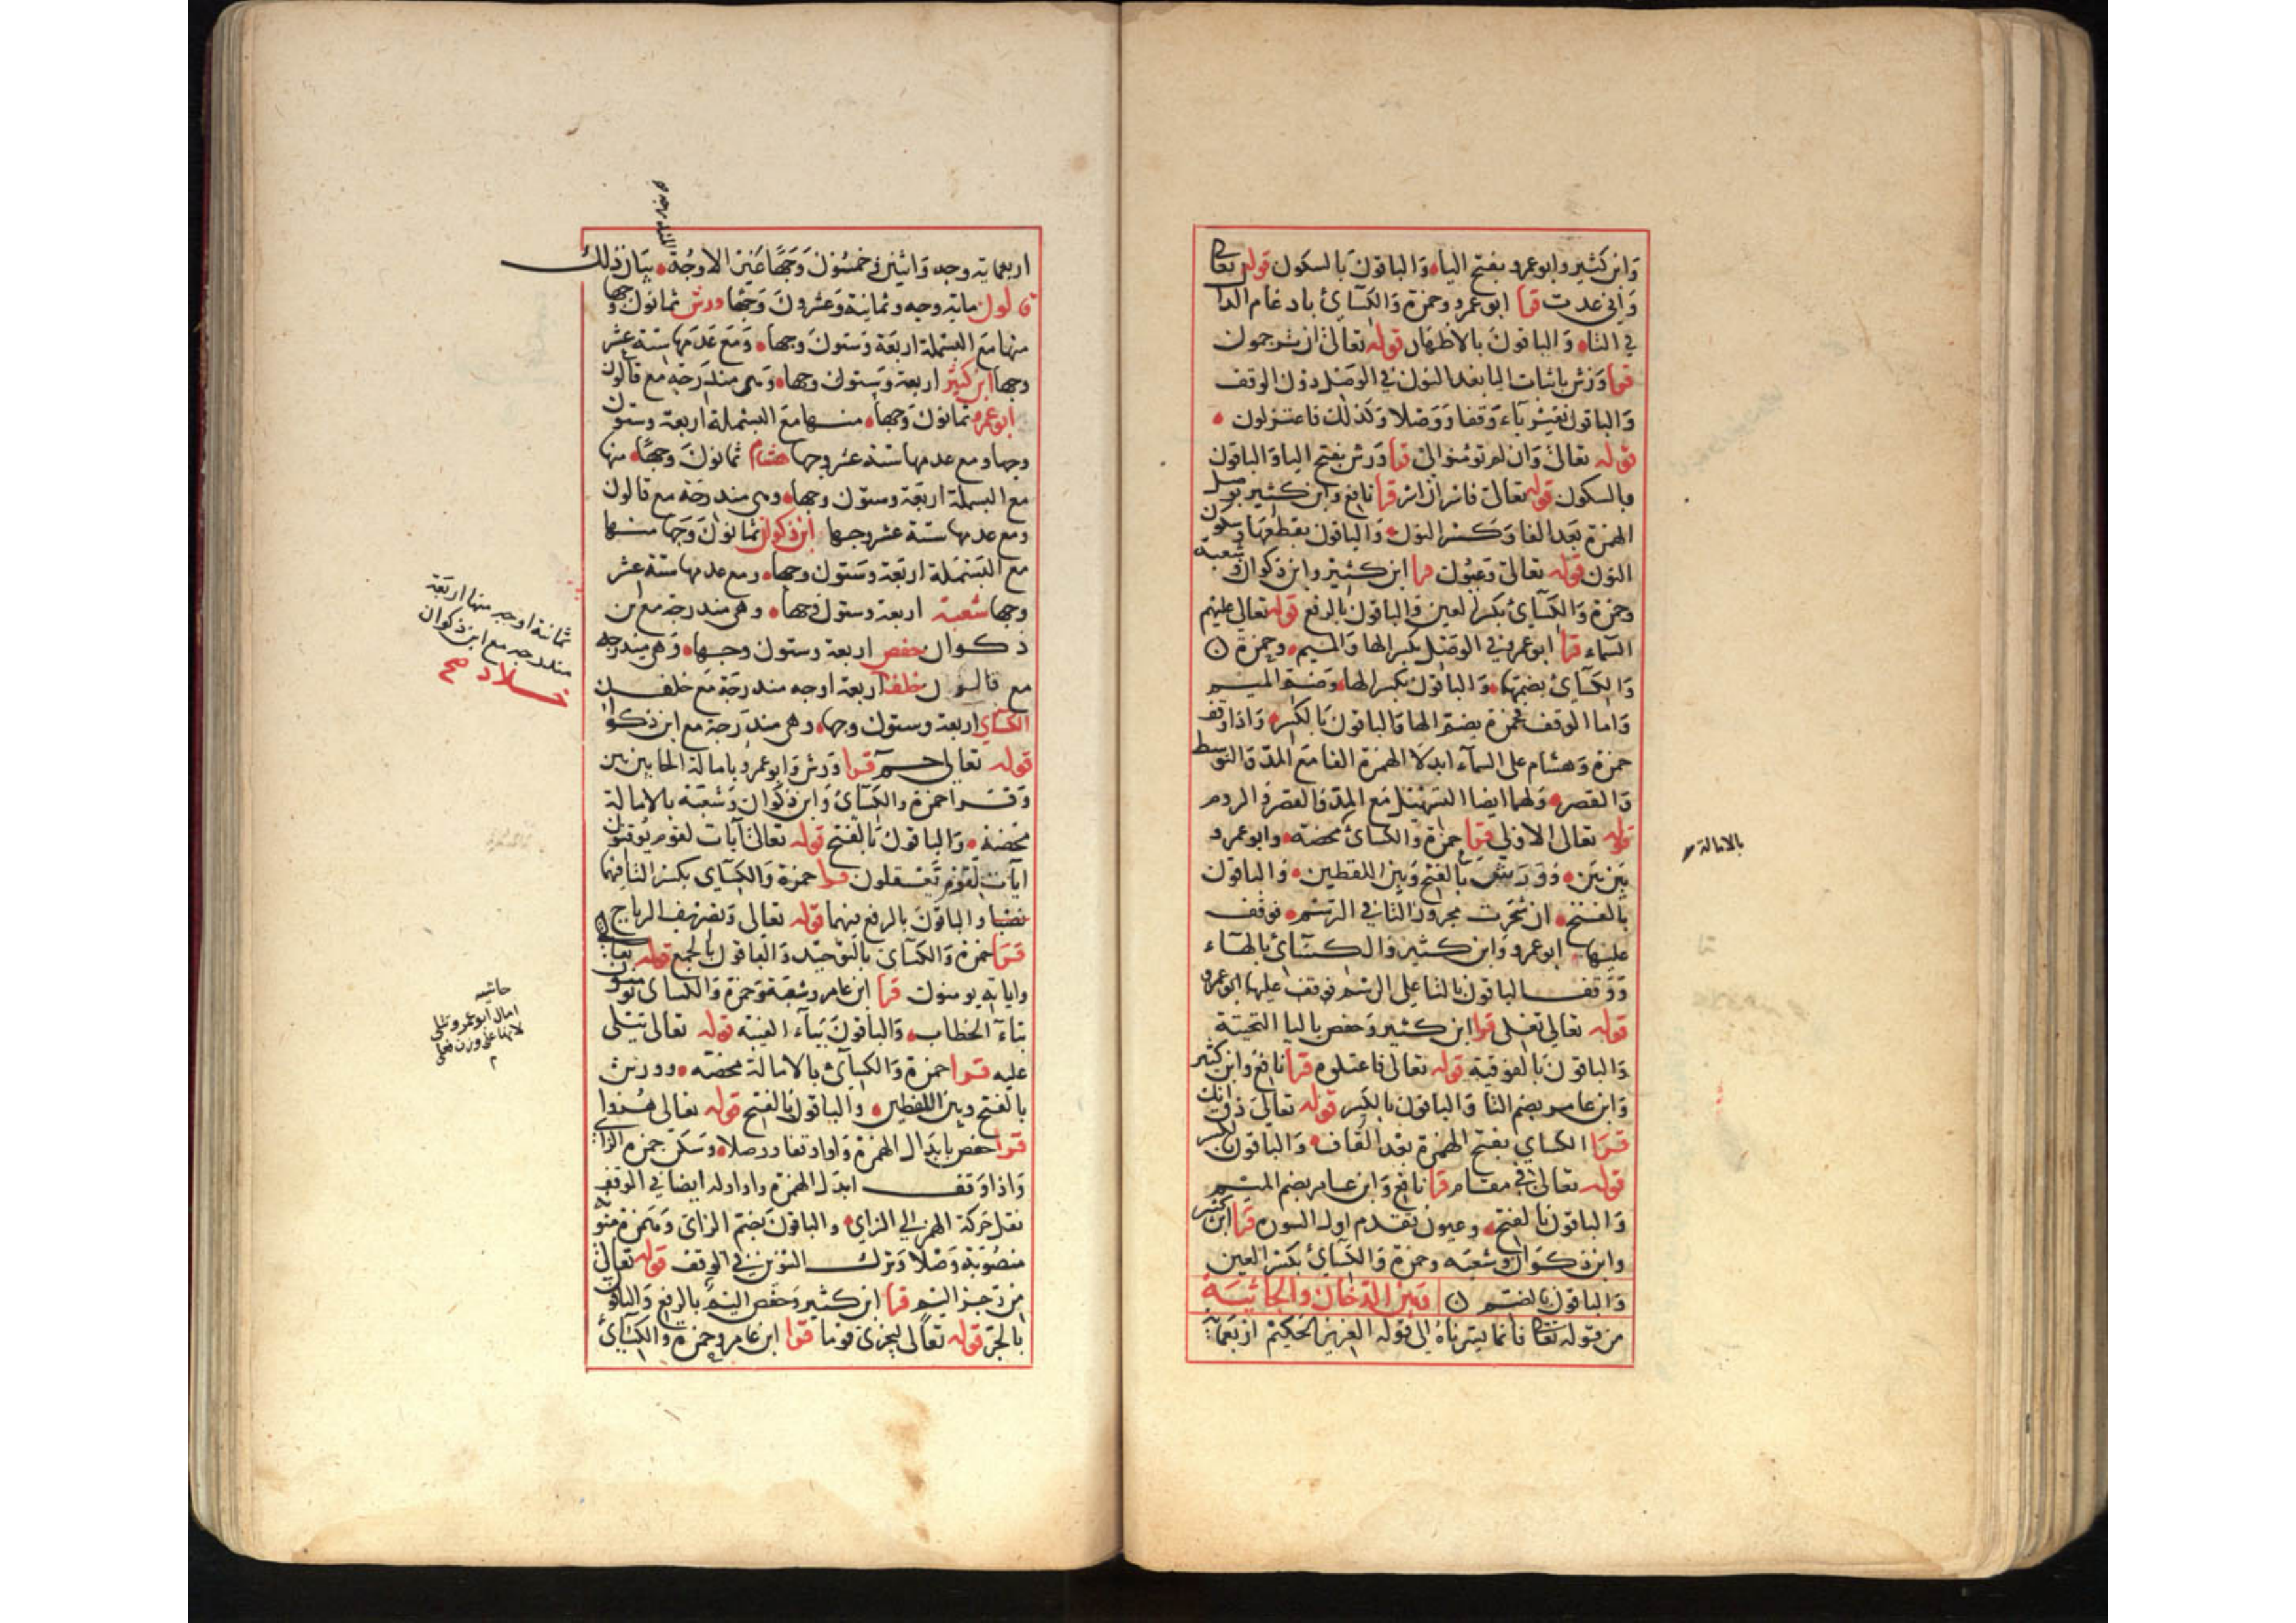 وابن كثير وابو عمرو بفتح الياء والباقون بالسكون قوله تعالى
واني عدت قرا ابو عمرو وحمزة والكسائ بادغام الذا
في التاء والباقون بالاظهار قوله تعالى ان ترجمون
قرا ورش باثبات اليا بعد النون في الوصل دون الوقف
والباقون بغير ياء وقفا ووصلا وكذلك فاعتزلون
قوله تعالى وان لم تومنوا لي قرا ورش بفتح اليا والباقون
بالسكون قوله تعالى فاسر ان اسر قرا نافع وابن كثير بوصل
الهمزة بعد الفا وكسر النون والباقون بقطعها وسكون
النون قوله تعالى وعيون قرا ابن كثير وابن ذكوان وشعبة
وحمزة والكسائ بكسر العين والباقون بالرفع قوله تعالى عليهم
السماء قرا ابو عمرو في الوصل بكسر الها والميم وحمزة
والكسائ بضمها والباقون بكسر الها وضم الميم
واما الوقف فحمزة بضم الها والباقون بالكسر واذا وقف
حمزة وهشام على السماء ابدلا الهمزة الفا مع المد والتوسط
والقصر ولهما ايضا التسهيل مع المد والقصر والروم
قوله تعالى الاولى قرا حمزة والكسائ محضة وابو عمرو
بين بين وورش بالفتح وبين اللفظين والباقون
بالفتح ان شجرت مجرور التا في الرسم فوقف
عليها ابو عمرو وابن كثير والكسائ بالهاء
ووقف الباقون بالتا على الرسم فوقف عليها ابو عمرو
قوله تعالى تغلى قرا ابن كثير وحفص باليا التحتية
والباقون بالفوقية قوله تعالى فاعتلوه قرا نافع وابن كثير
وابن عامر بضم التا والباقون بالكسر قوله تعالى ذق انك
قرا الكساي بفتح الهمزة بعد القاف والباقون بالكسر
قوله تعالى في مقام قرا نافع وابن عامر بضم الميم
والباقون بالفتح وعيون تقدم اول السورة قرا ابن كثير
وابن ذكوان وشعبه وحمزة والكسائ بكسر العين
والباقون بالضم وبين الدخان والجاثية
من قوله تعالى فانما يسرناه الى قوله العزيز الحكيم اربعماية
بالامالة
اربعماية وجه واثنين وخمسون وجها غير الاوجه بيان ذلك
قالون ماية وجه وثمانية وعشرون وجها ورش ثمانون وجها
منها مع البسملة اربعة وستون وجها ومع عدمها ستة عشر
وجها ابن كثير اربعة وستون وجها وهي مندرجة مع قالون
ابو عمرو ثمانون وجها منها مع البسملة اربعة وستون
وجها ومع عدمها ستة عشر وجها هشام ثمانون وجها منها
مع البسملة اربعة وستون وجها وهي مندرجة مع قالون
ومع عدمها ستة عشر وجها ابن ذكوان ثمانون وجها منها
مع البسملة اربعة وستون وجها ومع عدمها ستة عشر
وجها شعبة اربعة وستون وجها وهي مندرجة مع ابن
ذكوان حفص اربعة وستون وجها وهي مندرجه
مع قالون خلف اربعة اوجه مندرجة مع خلف
الكسائ اربعة وستون وجها وهي مندرجة مع ابن ذكوان
قوله تعالى حم قرا ورش وابو عمرو بامالة الحا بين بين
وقرا حمزة والكسائ وابن ذكوان وشعبة بالامالة
محضة والباقون بالفتح قوله تعالى آيات لقوم يوقنون
ايات لقوم تعقلون قرا حمزة والكساي بكسر التا فيهما
نصبا والباقون بالرفع فيهما قوله تعالى وتصريف الرياح
قرا حمزة والكسائ بالتوحيد والباقون بالجمع قوله تعالى
واياته يومنون قرا ابن عامر وشعبة وحمزة والكسائ تومنون
بتاء الخطاب والباقون بياء الغيبة قوله تعالى تتلى
عليه قرا حمزة والكسائ بالامالة محضة وورش
بالفتح وبين اللفظين والباقون بالفتح قوله تعالى هزوا
قرا حفص بابدال الهمزة واوا وقفا ووصلا وسكن حمزة الزاي
واذا وقف ابدل الهمزة واوا وله ايضا في الوقف
نقل حركة الهمز الى الزاي والباقون بضم الزاى وهمزة منونة
منصوبة وصلا وترك التنوين في الوقف قوله تعالى
من رجز اليم قرا ابن كثير وحفص اليم بالرفع والباقون
بالجر قوله تعالى ليجزى قوما قرا ابن عامر وحمزة والكسائ
ثمانية اوجه منها اربعة
مندرجه مع ابن ذكوان
خلاد صح
حاشيه
امال ابو عمرو تتلى
لانها على وزن فعلى